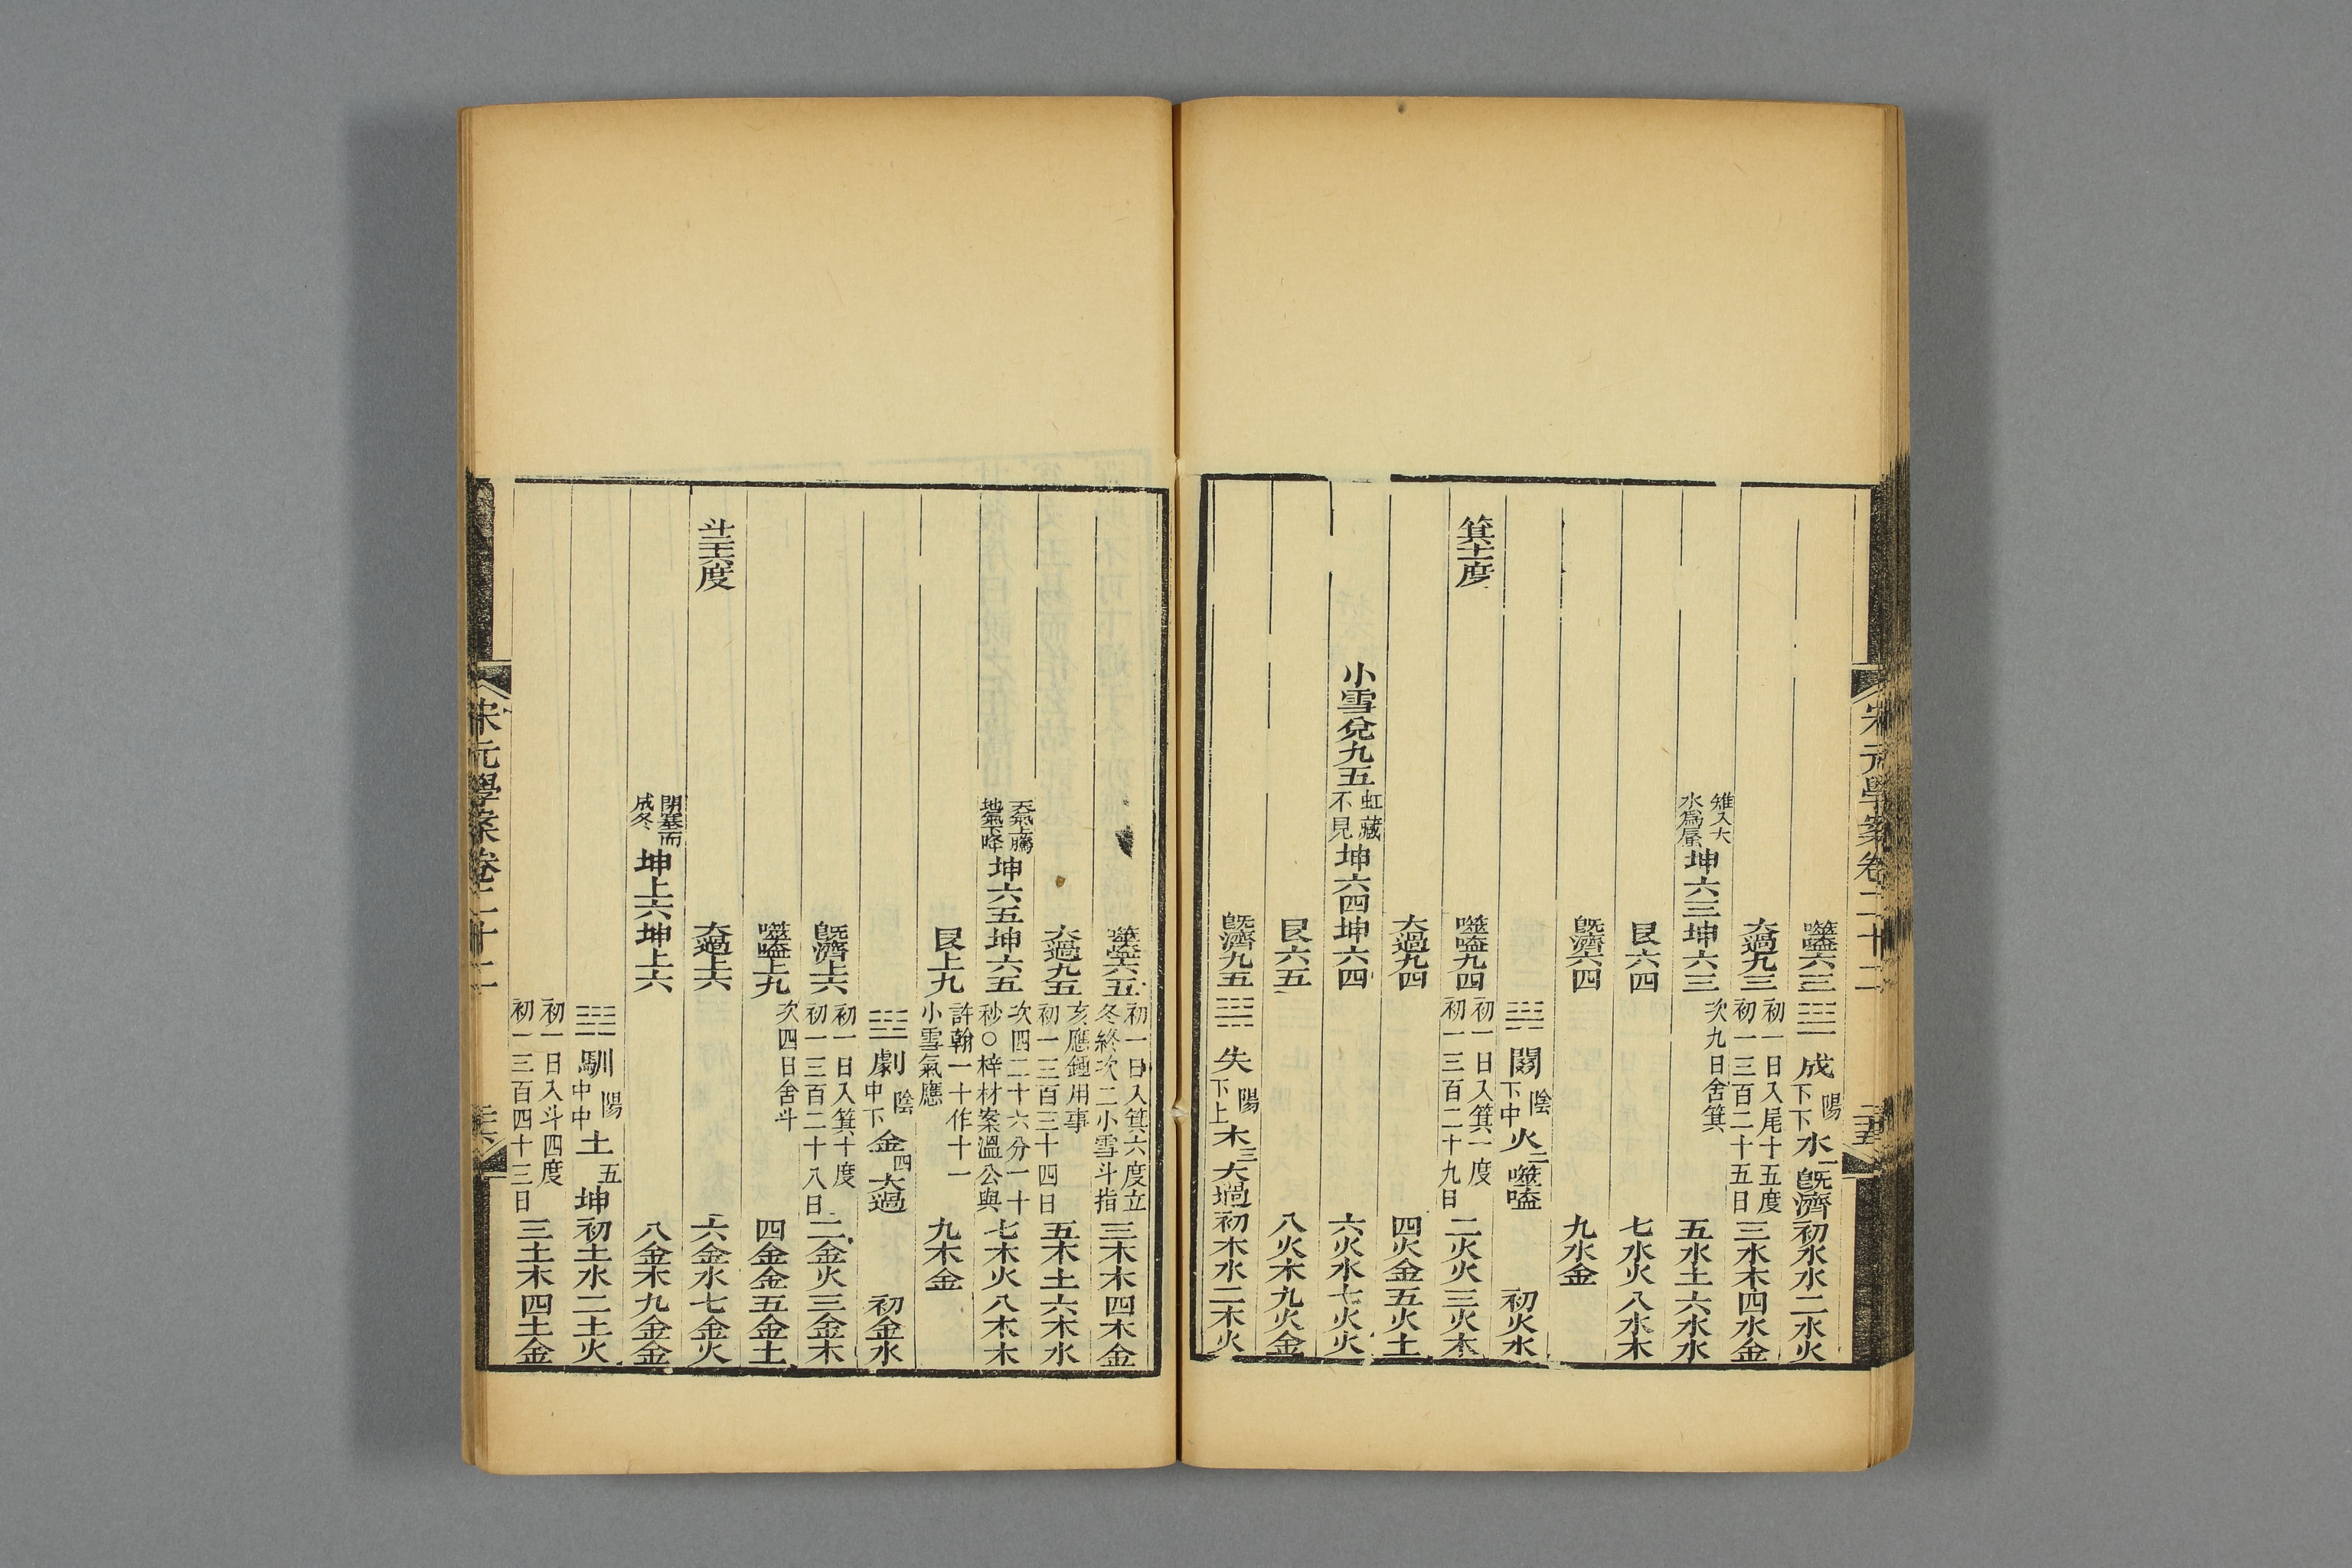 宋元學案卷二十二
噬嗑六三 成 陽下下 水一 旣濟 初水水二水火
大過九三 初一日入尾十五度初一三百二十五日 三水木四水金
雉入大水爲蜃 坤六三坤六三 次九日舍箕 五水土六水水
艮六四 七水火八水木
旣濟六四 九水金
䦯 陰下中 火二 噬嗑 初火水
箕十一度 噬嗑九四 初一日入箕一度初一三百二十九日 二火火三火木
大過九四 四火金五火土
小雪兌九五 虹藏不見 坤六四坤六四 六火水七火火
艮六五 八火木九火金
旣濟九五 失 陽下上 木三 大過 初木水二木火
噬嗑六五 初一日入箕六度立冬終次二小雪斗指 三木木四木金
大過九五 亥應鍾用事初一三百三十四日 五木土六木水
天氣上騰地氣下降 坤六五坤六五 次四二十六分一十秒○梓材案溫公與 七木火八木木
艮上九 許翰一十作十一小雪氣應 九木金
劇 陰中下 金四 大過 初金水
旣濟上六 初一日入箕十度初一三百二十八日 二金火三金木
噬嗑上九 次四日舍斗 四金金五金土
斗二十六度 大過上六 六金水七金火
閉塞而成冬 坤上六坤上六 八金木九金金
馴 陽中中 土五 坤 初土水二土火
初一日入斗四度初一三百四十三日 三土木四土金
宋元學案卷二十二